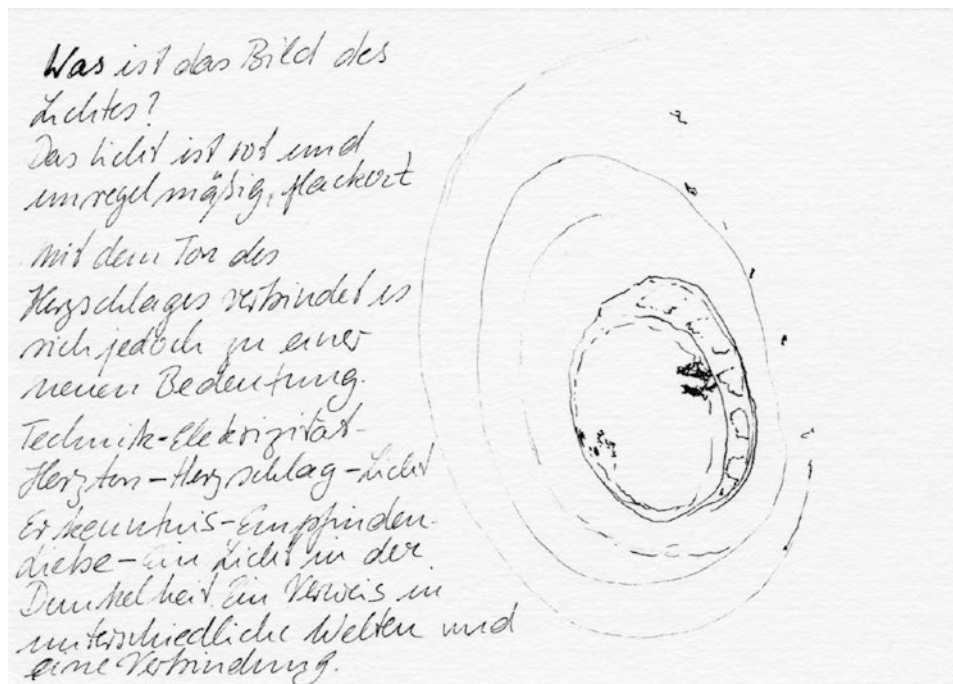 Was ist das Bild des
Lichtes?
Das Licht ist rot und
unregelmäßig, flackert
mit dem Ton des
Herzschlages verbindet es
sich jedoch zu einer
neuen Bedeutung.
Technik-Elektrizität-
Herzton-Herzschlag-Licht
Erkenntnis-Empfinden-
Liebe-Ein Licht in der
Dunkelheit. Ein Verweis in
unterschiedliche Welten und
eine Verbindung.